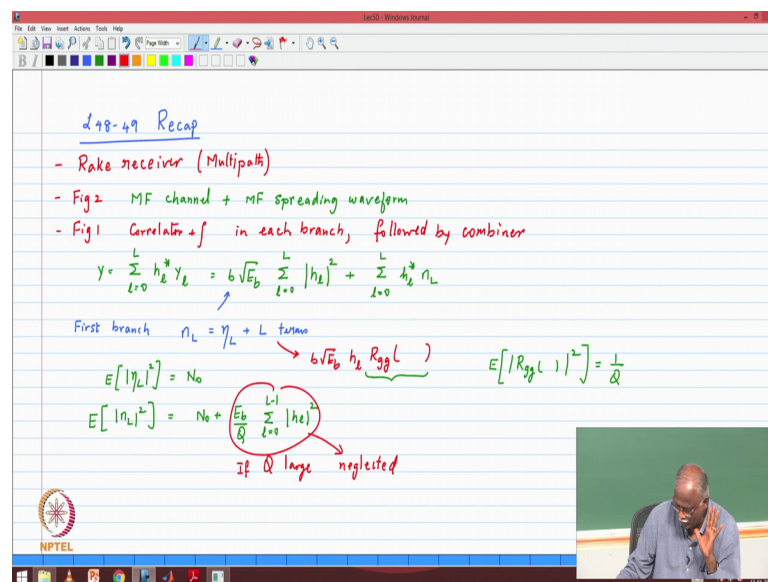 Lec50 - Windows Journal
File Edit View Insert Actions Tools Help
Page Width
B I
L48-49 Recap
- Rake receiver (Multipath)
- Fig 2 MF channel + MF spreading waveform
- Fig 1 Correlator + ∫ in each branch, followed by combiner
y = Σ_{l=0}^{L} h_l^* y_l = b√E_b Σ_{l=0}^{L} |h_l|^2 + Σ_{l=0}^{L} h_l^* n_L
First branch n_L = η_L + L terms
b√E_b h_l R_gg( ) E[|R_gg( )|^2] = 1/Q
E[|η_L|^2] = N_0
E[|n_L|^2] = N_0 + E_b/Q Σ_{l=0}^{L-1} |h_l|^2
If Q large neglected
NPTEL